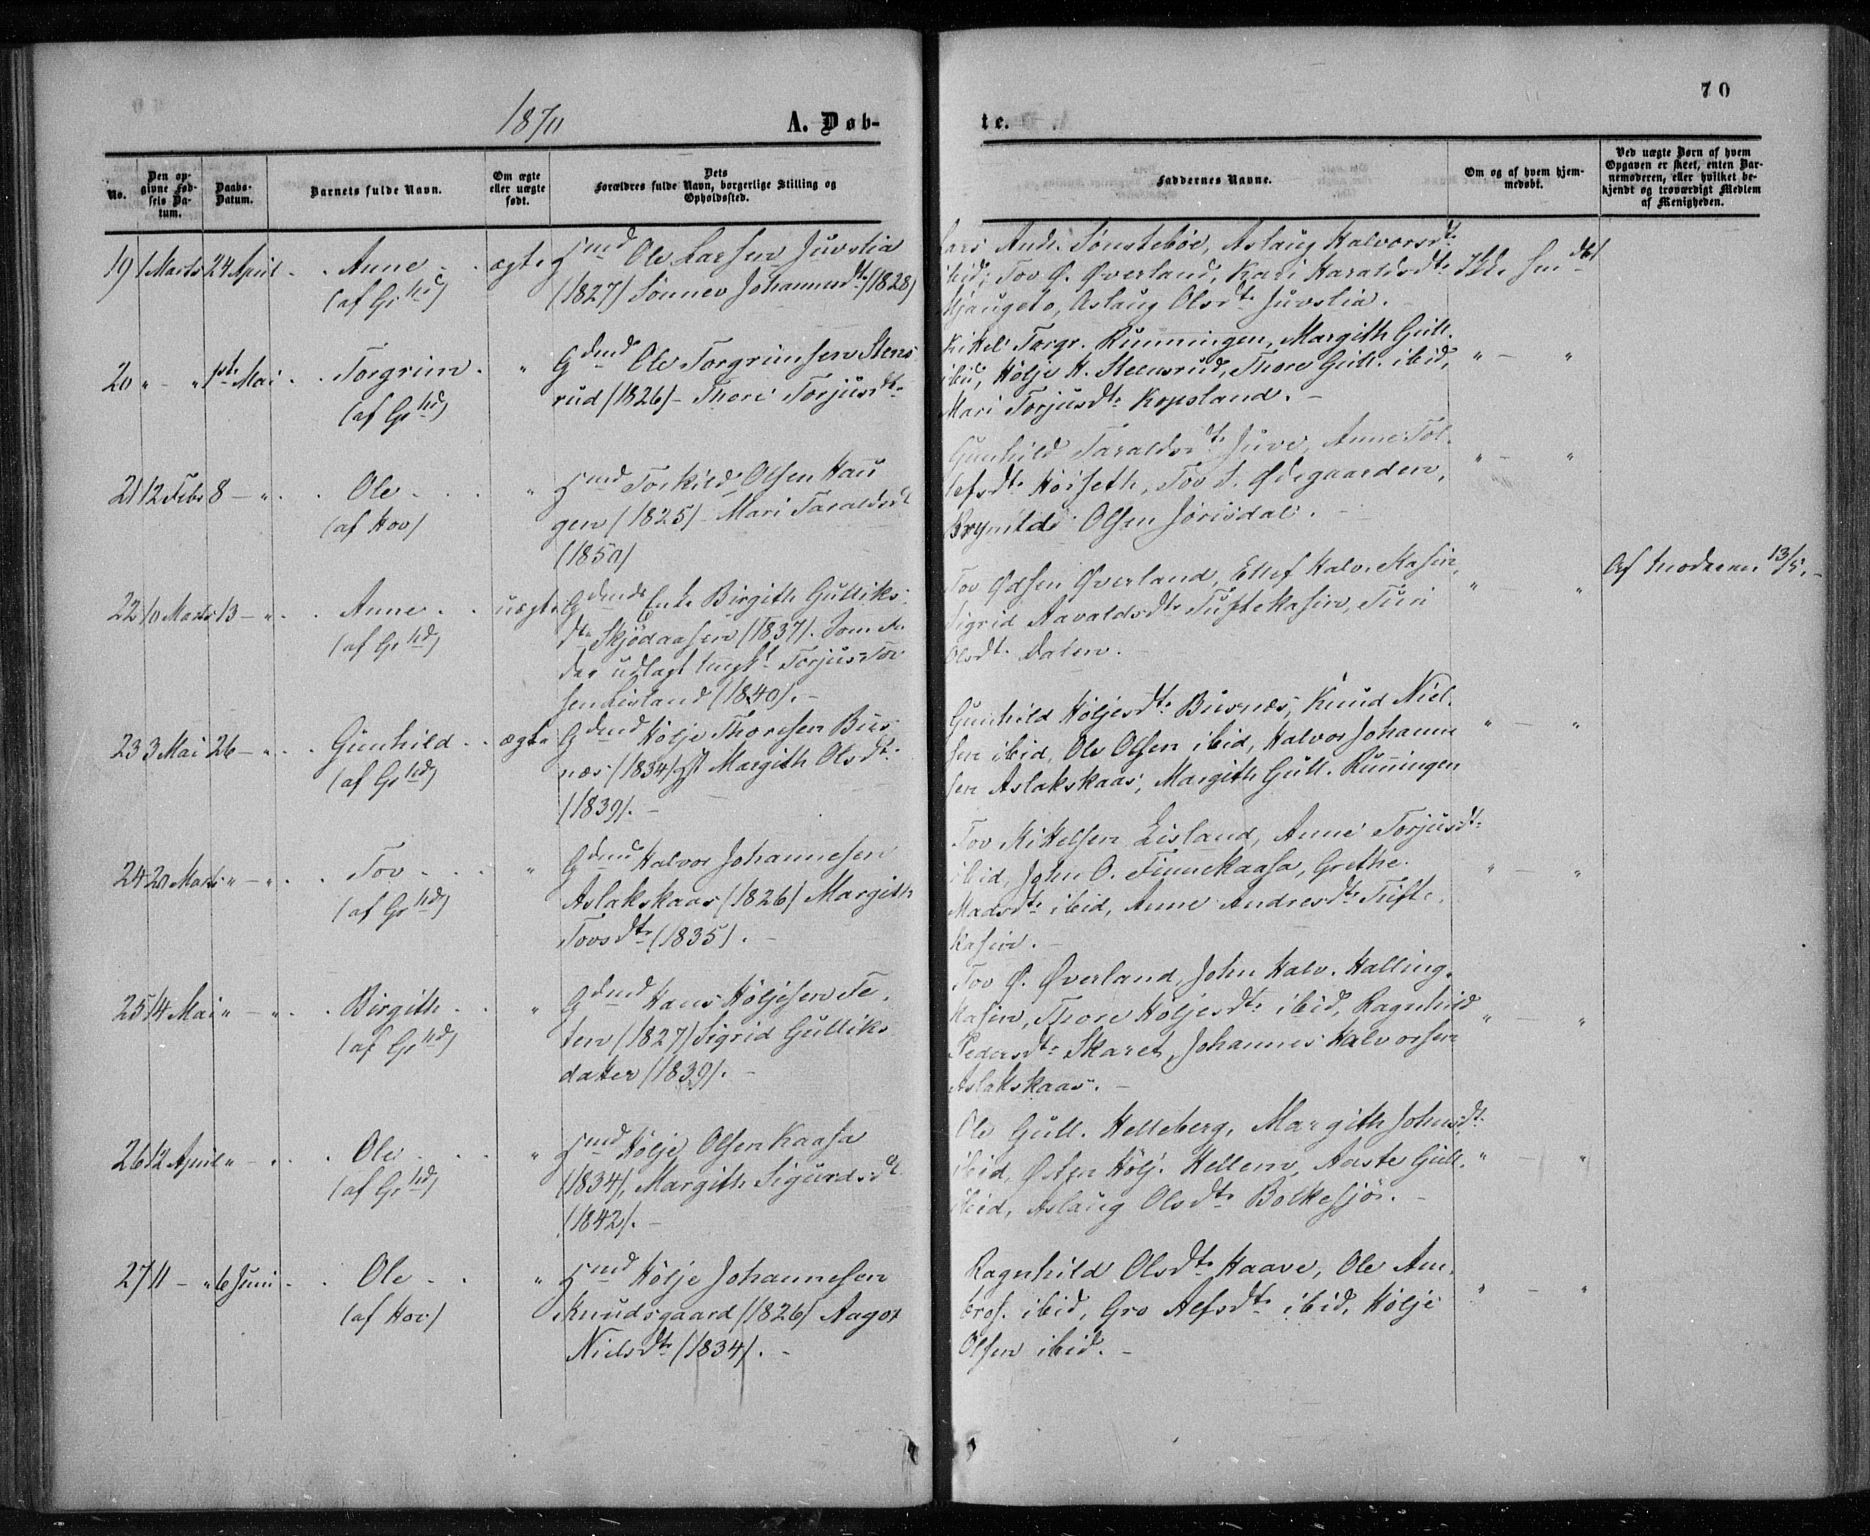 70
1870
A. Døb-
te.
No.
Den op-
givne Fød-
sels Da-
tum.
Daabs-
Datum.
Barnets fulde Navn.
Om ægte
eller uægte
født.
Dets
Forældres fulde Navn, borgerlige Stilling og
Opholdssted.
Faddernes Navne.
Om og af hvem hjem-
medøbt.
Ved uægte Børn af hvem
Opgaven er skeet, enten Bar-
nemoderen, eller hvilket be-
kjendt og troværdigt Medlem
af Menigheden.
19 1 Marts 24 April Anne ægte Hmd Ole Larsen Juvslia
(af Grhd) (1827) Sønnev Johannesdtr (1828)
Lars And. Sønstebøe, Aslaug Halvorsdtr
ibid, Tov Ø. Øverland, Kari Haraldsdtr Ikke hmdbt
Aslaug Olsdtr Juvslia.
20 " " 1ste Mai Torgrim " Gdmd Ole Torgrimsen Stens-
(af Grhd) rud (1826) Thore Torjusdtr
Kittel Torgr. Runningen, Margith Gull.
ibid, Hølje H. Steensrud, Thore Gull. ibid, " — "
Mari Torjusdtr Kopsland.
21 12 Febr 8 — " Ole " Hmd Torkild Olsen Hau-
(af Hov) gen (1825) Mari Taraldsdt
(1850)
Gunhild Taraldsdt Juve, Anne Tol-
lefsdtr Høiseth, Tov T. Ødegaarden, " — "
Brynild Olsen Jørisdal.
22 10 Marts 13 — " Anne uægte Gdmds Enke Birgith Gulliks-
(af Grhd) dtr Skjødaasen (1837). Som Fa-
der udlagt Ungk. Torjus Tov-
sen Lisland (1840).
Tov Ødsen Øverland, Ellef Halv. Kasin,
Sigrid Aavaldsdtr Tuftekasin, Turi " — "
Olsdt Dalen.
Af Moderen 13/5.
23 3 Mai 26 — " Gunhild ægte Gdmd Hølje Thoresen Bus-
(af Grhd) næs (1834) gft Margith Olsdtr
(1839).
Gunhild Høljesdtr Busnæs, Knud Niel-
sen ibid, Ole Olsen ibid, Halvor Johanne- " — "
sen Aslakskaas, Margith Gull. Runningen
24 20 Marts " — " Tov " Gdmd Halvor Johannesen
(af Grhd) Aslakskaas (1826) Margith
Tovsdtr (1835).
Tov Kittelsen Lisland, Anne Torjusdtr
ibid, John O. Finnekaasa, Grethe " — "
Madsdtr ibid, Anne Andresdtr Tufte-
kasin.
25 14 Mai " — " Birgith " Gdmd Hans Høljesen Te-
(af Grhd) ten (1827) Sigrid Gulliks-
datter (1839).
Tov Ø. Øverland, John Halv. Halling-
kasin, Thore Høljesdtr ibid, Ragnhild " — "
Pedersdtr Skaret, Johannes Halvorsen
Aslakskaas.
26 12 April " — " Ole " Hmd Hølje Olsen Kaasa
(af Grhd) (1834), Margith Sigurdsdt
(1842).
Ole Gull. Helleberg, Margith Johnsdt
ibid, Østen Hølj. Hellem, Aaste Gull. " — "
ibid, Aslaug Olsdtr Bolkesjø.
27 11 — " 6 Juni Ole " Hmd Hølje Johannesen
(af Hov) Knudsgaard (1826) Aagot
Nielsdtr (1834).
Ragnhild Olsdtr Haave, Ole Am-
bros. ibid, Gro Alfsdtr ibid, Hølje " — "
Olsen ibid.